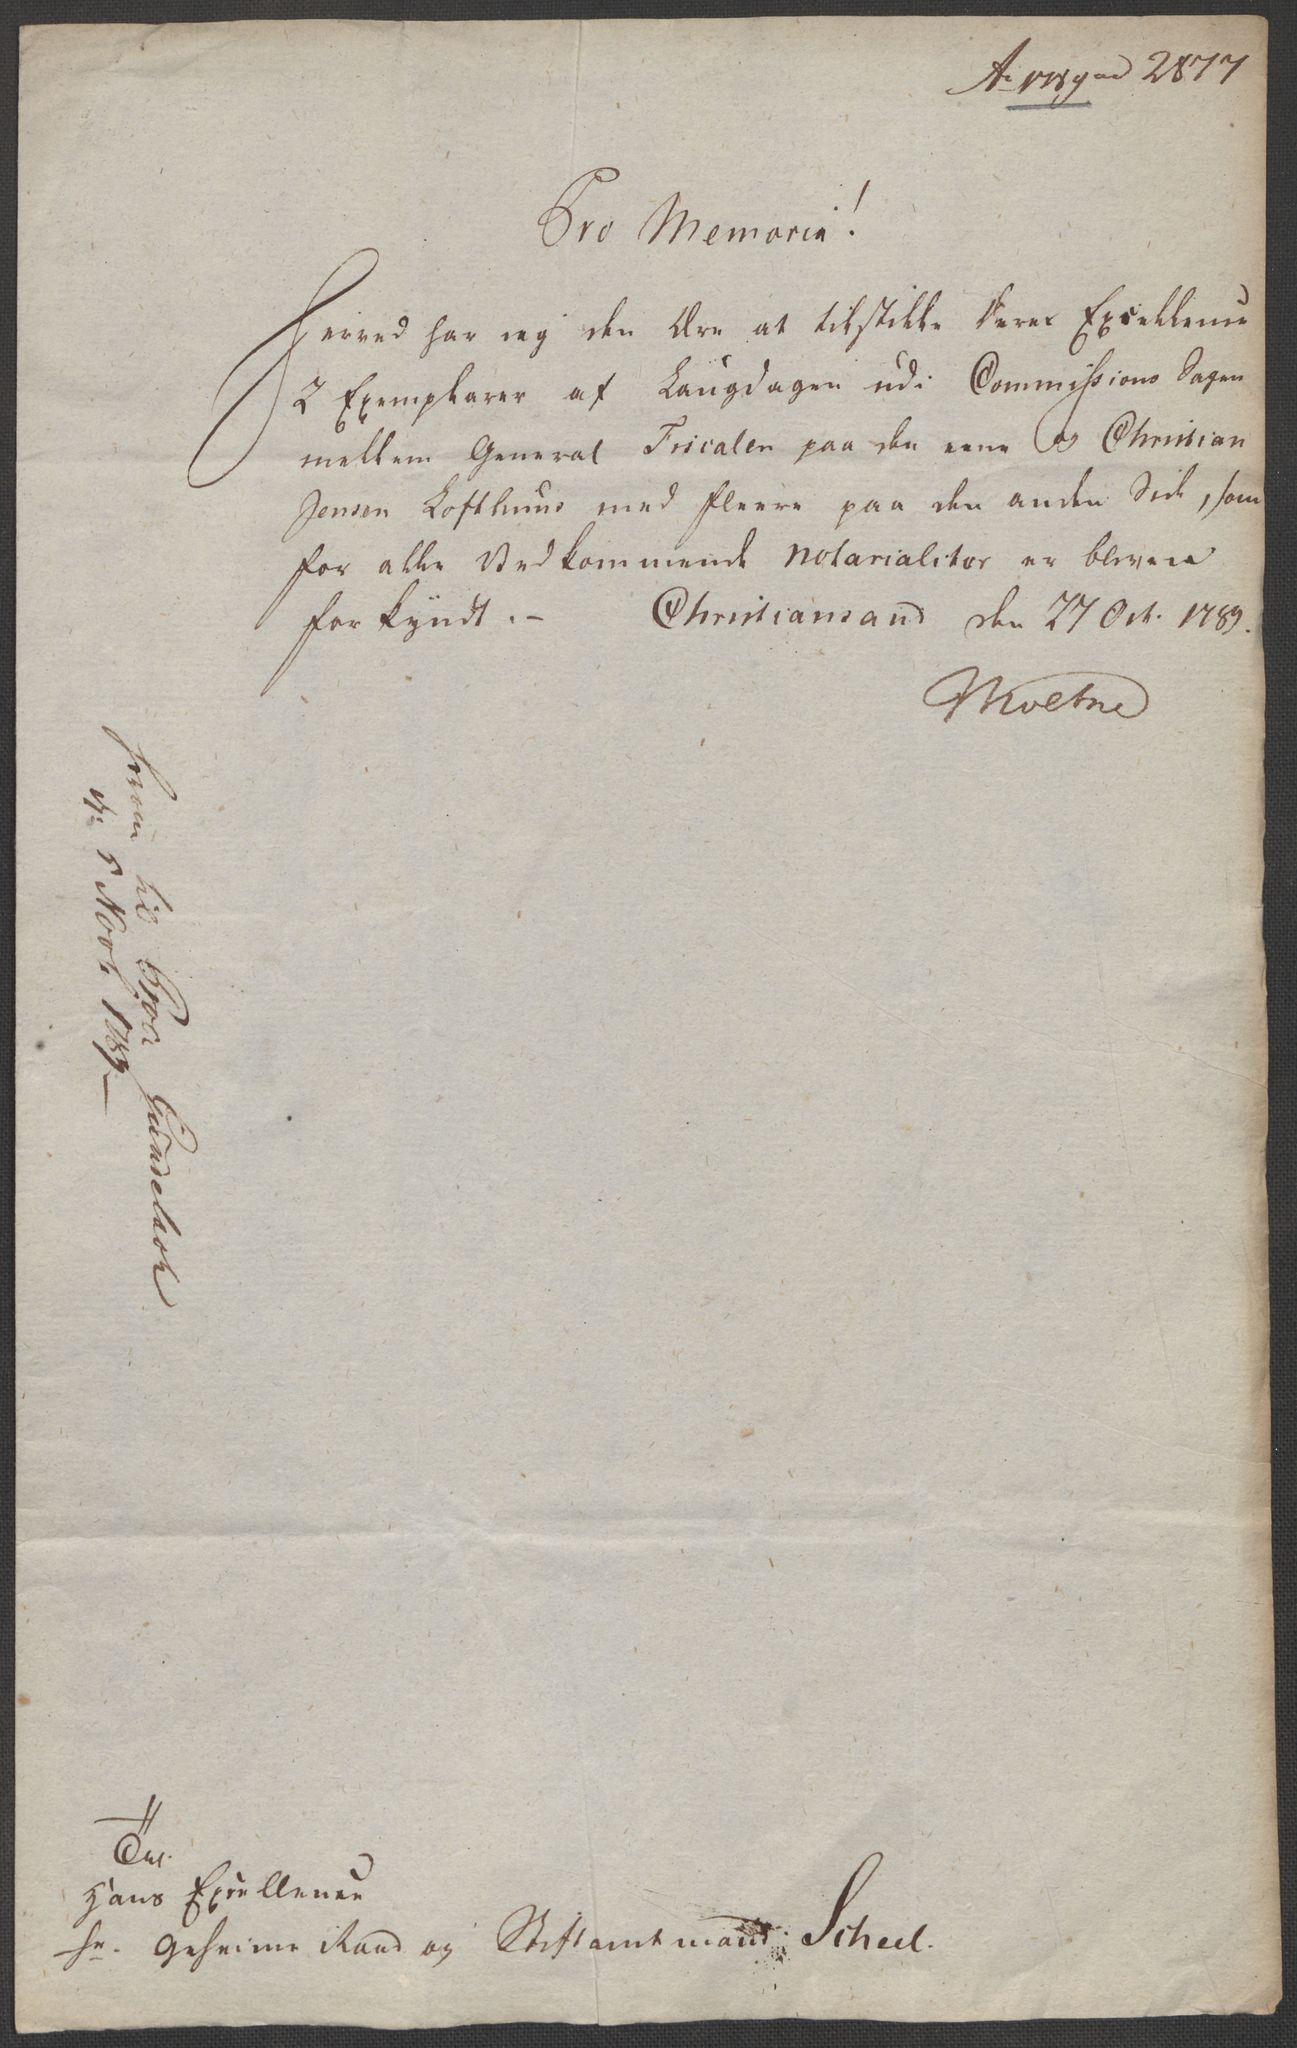 2877
Pro Memoria!
Herved har ieg den Ære at tilstille Deres Excellence
2 Exemplarer af Laugdagen udi Commissions Sagen
mellem General Fiscalen paa den eene og Christian
Jensen Lofthuus med fleere paa den anden Side, som
for alle Vedkommende Notarialiter er bleven
forkyndt. - Christiansand den 27 Oct. 1789.
Moeltne
til Proc: Gundelach
5 Novbr 1789
Til
Hans Excellence
Hr. Geheime Raad og Stiftamtmand Scheel.